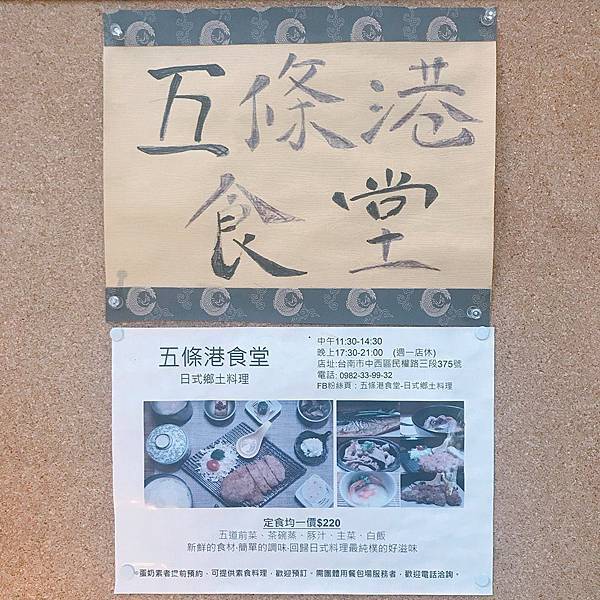 五條港
食堂
五條港食堂
日式鄉土料理
中午11:30-14:30
晚上17:30-21:00 (週一店休)
店址:台南市中西區民權路三段375號
電話: 0982-33-99-32
FB粉絲頁：五條港食堂-日式鄉土料理
定食均一價$220
五道前菜、茶碗蒸、豚汁、主菜、白飯
新鮮的食材‧簡單的調味‧回歸日式料理最純樸的好滋味
*蛋奶素者提前預約、可提供素食料理，歡迎預訂。需團體用餐包場服務者，歡迎電話洽詢。